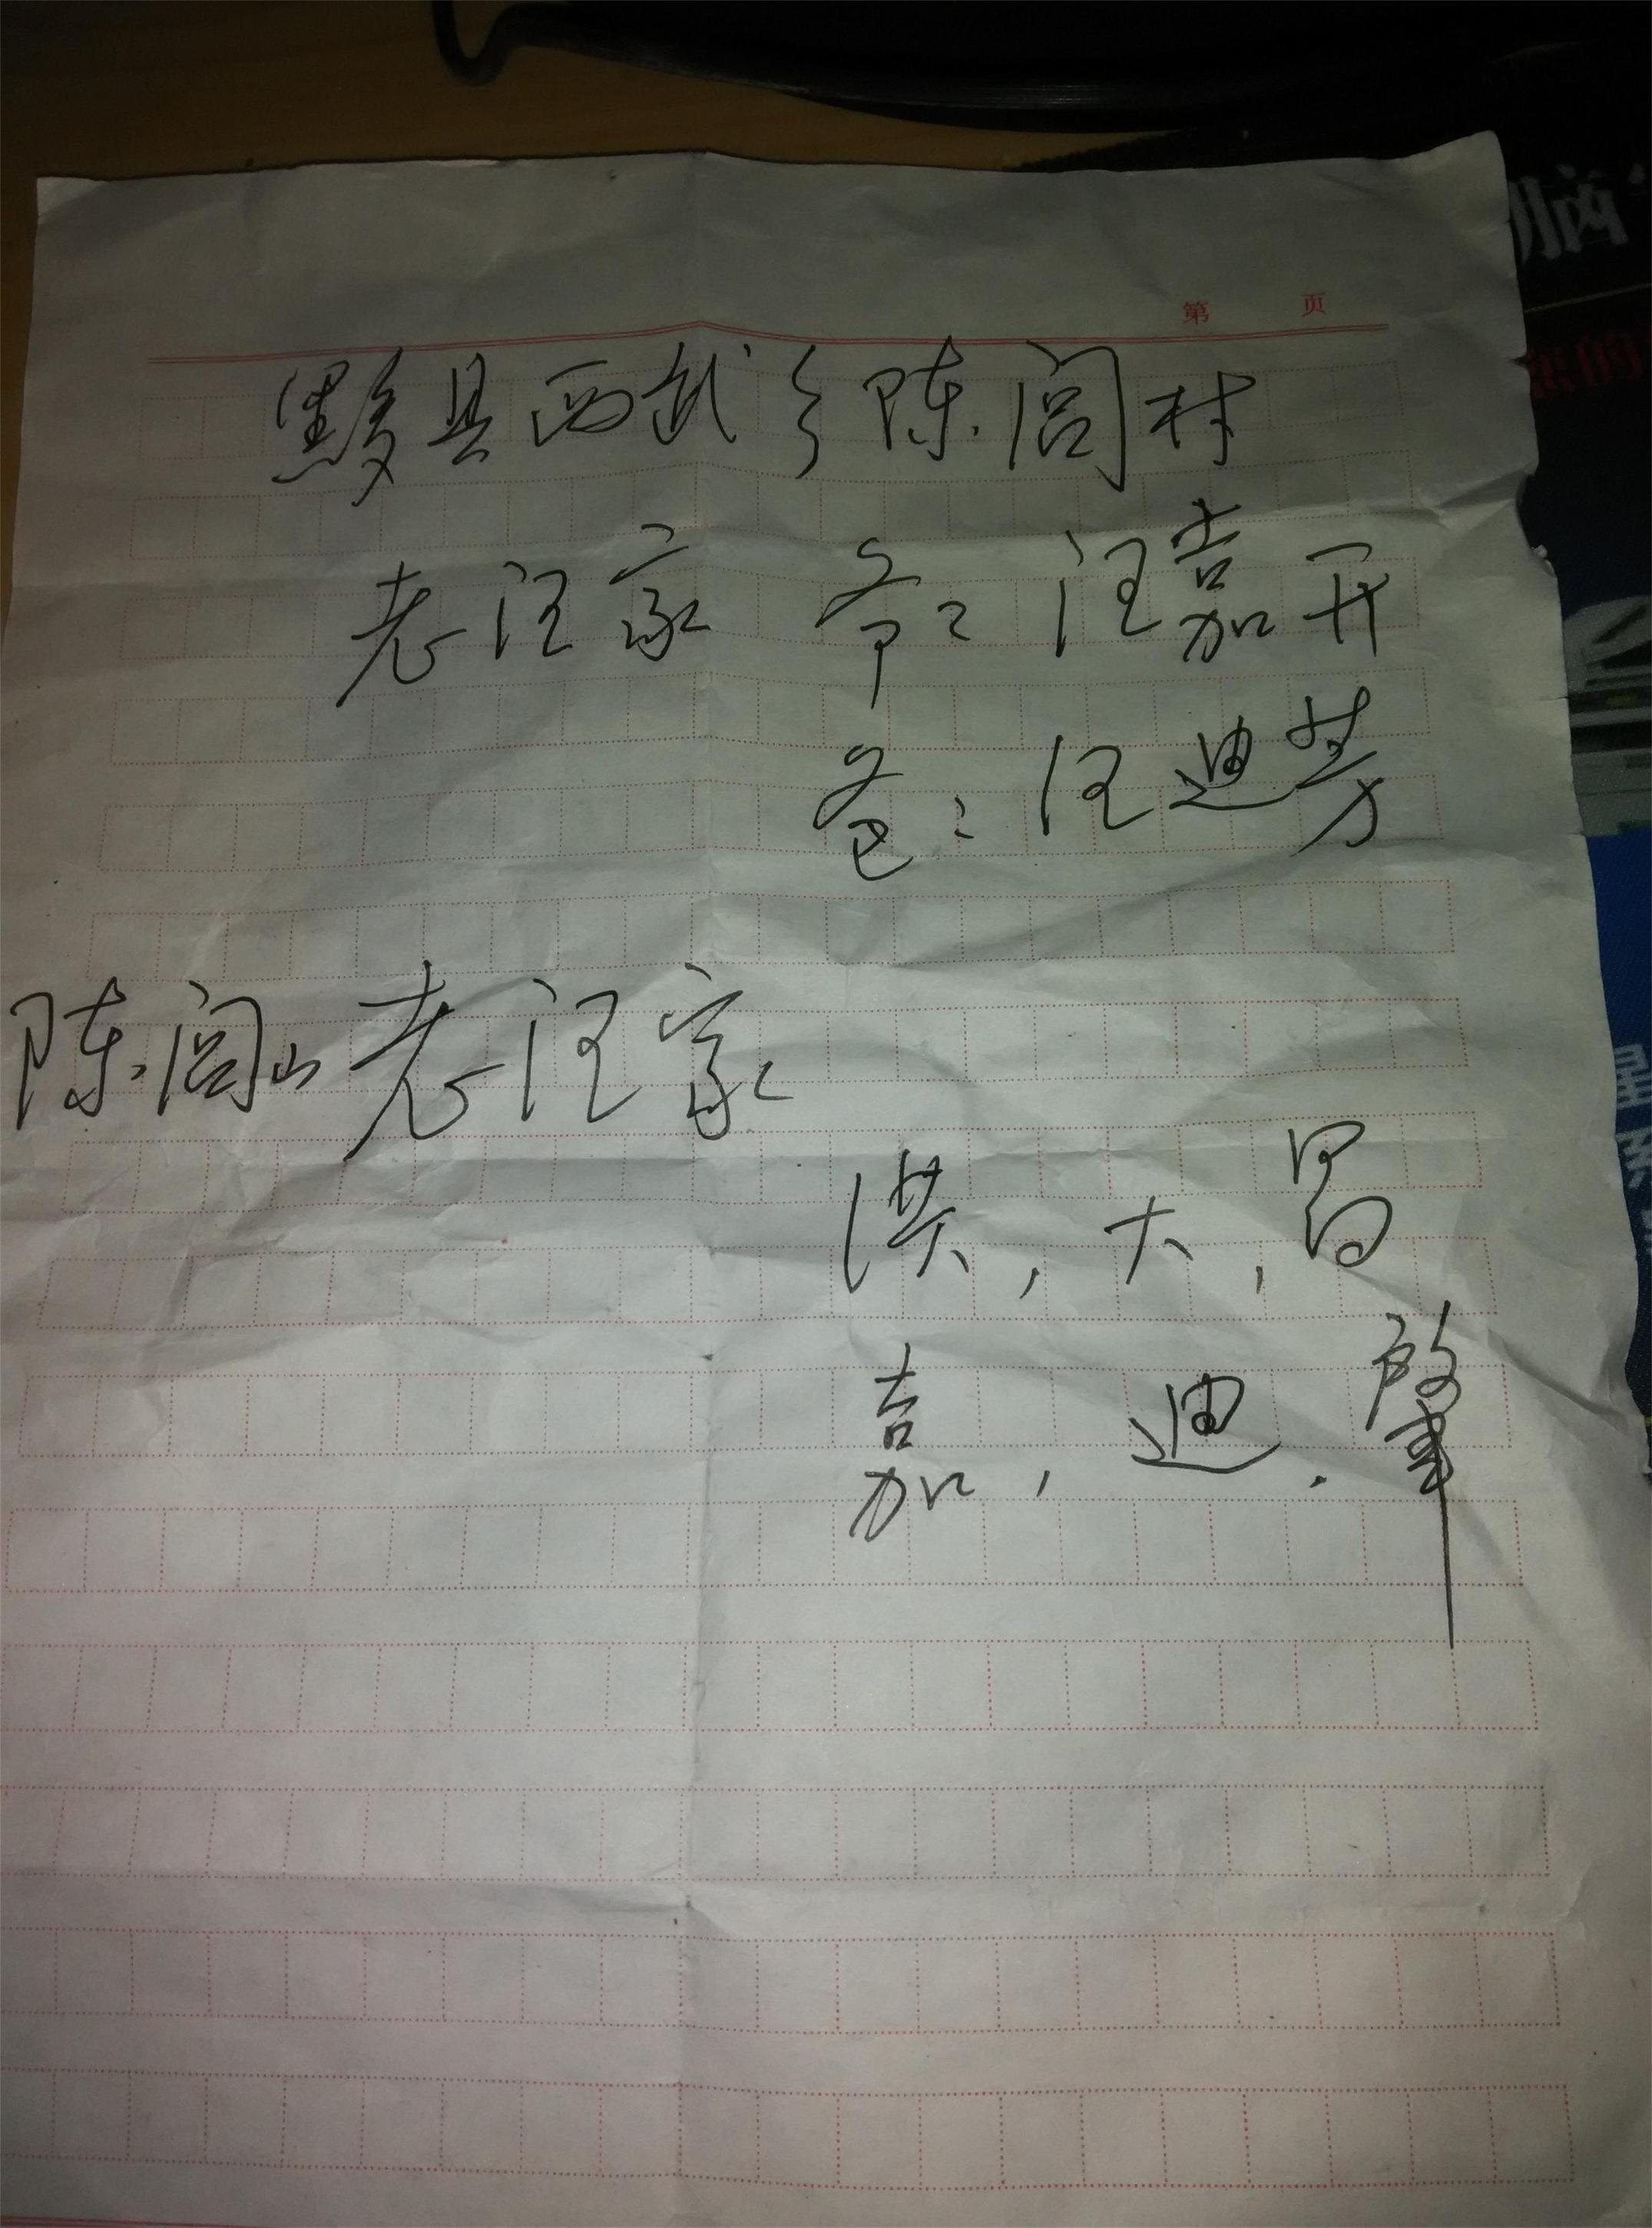 第 页
黟县西武乡陈闾村
老汪家 爷：汪嘉开
爸：汪迪芳
陈闾山老汪家
洪，大，昌
嘉，迪，肇